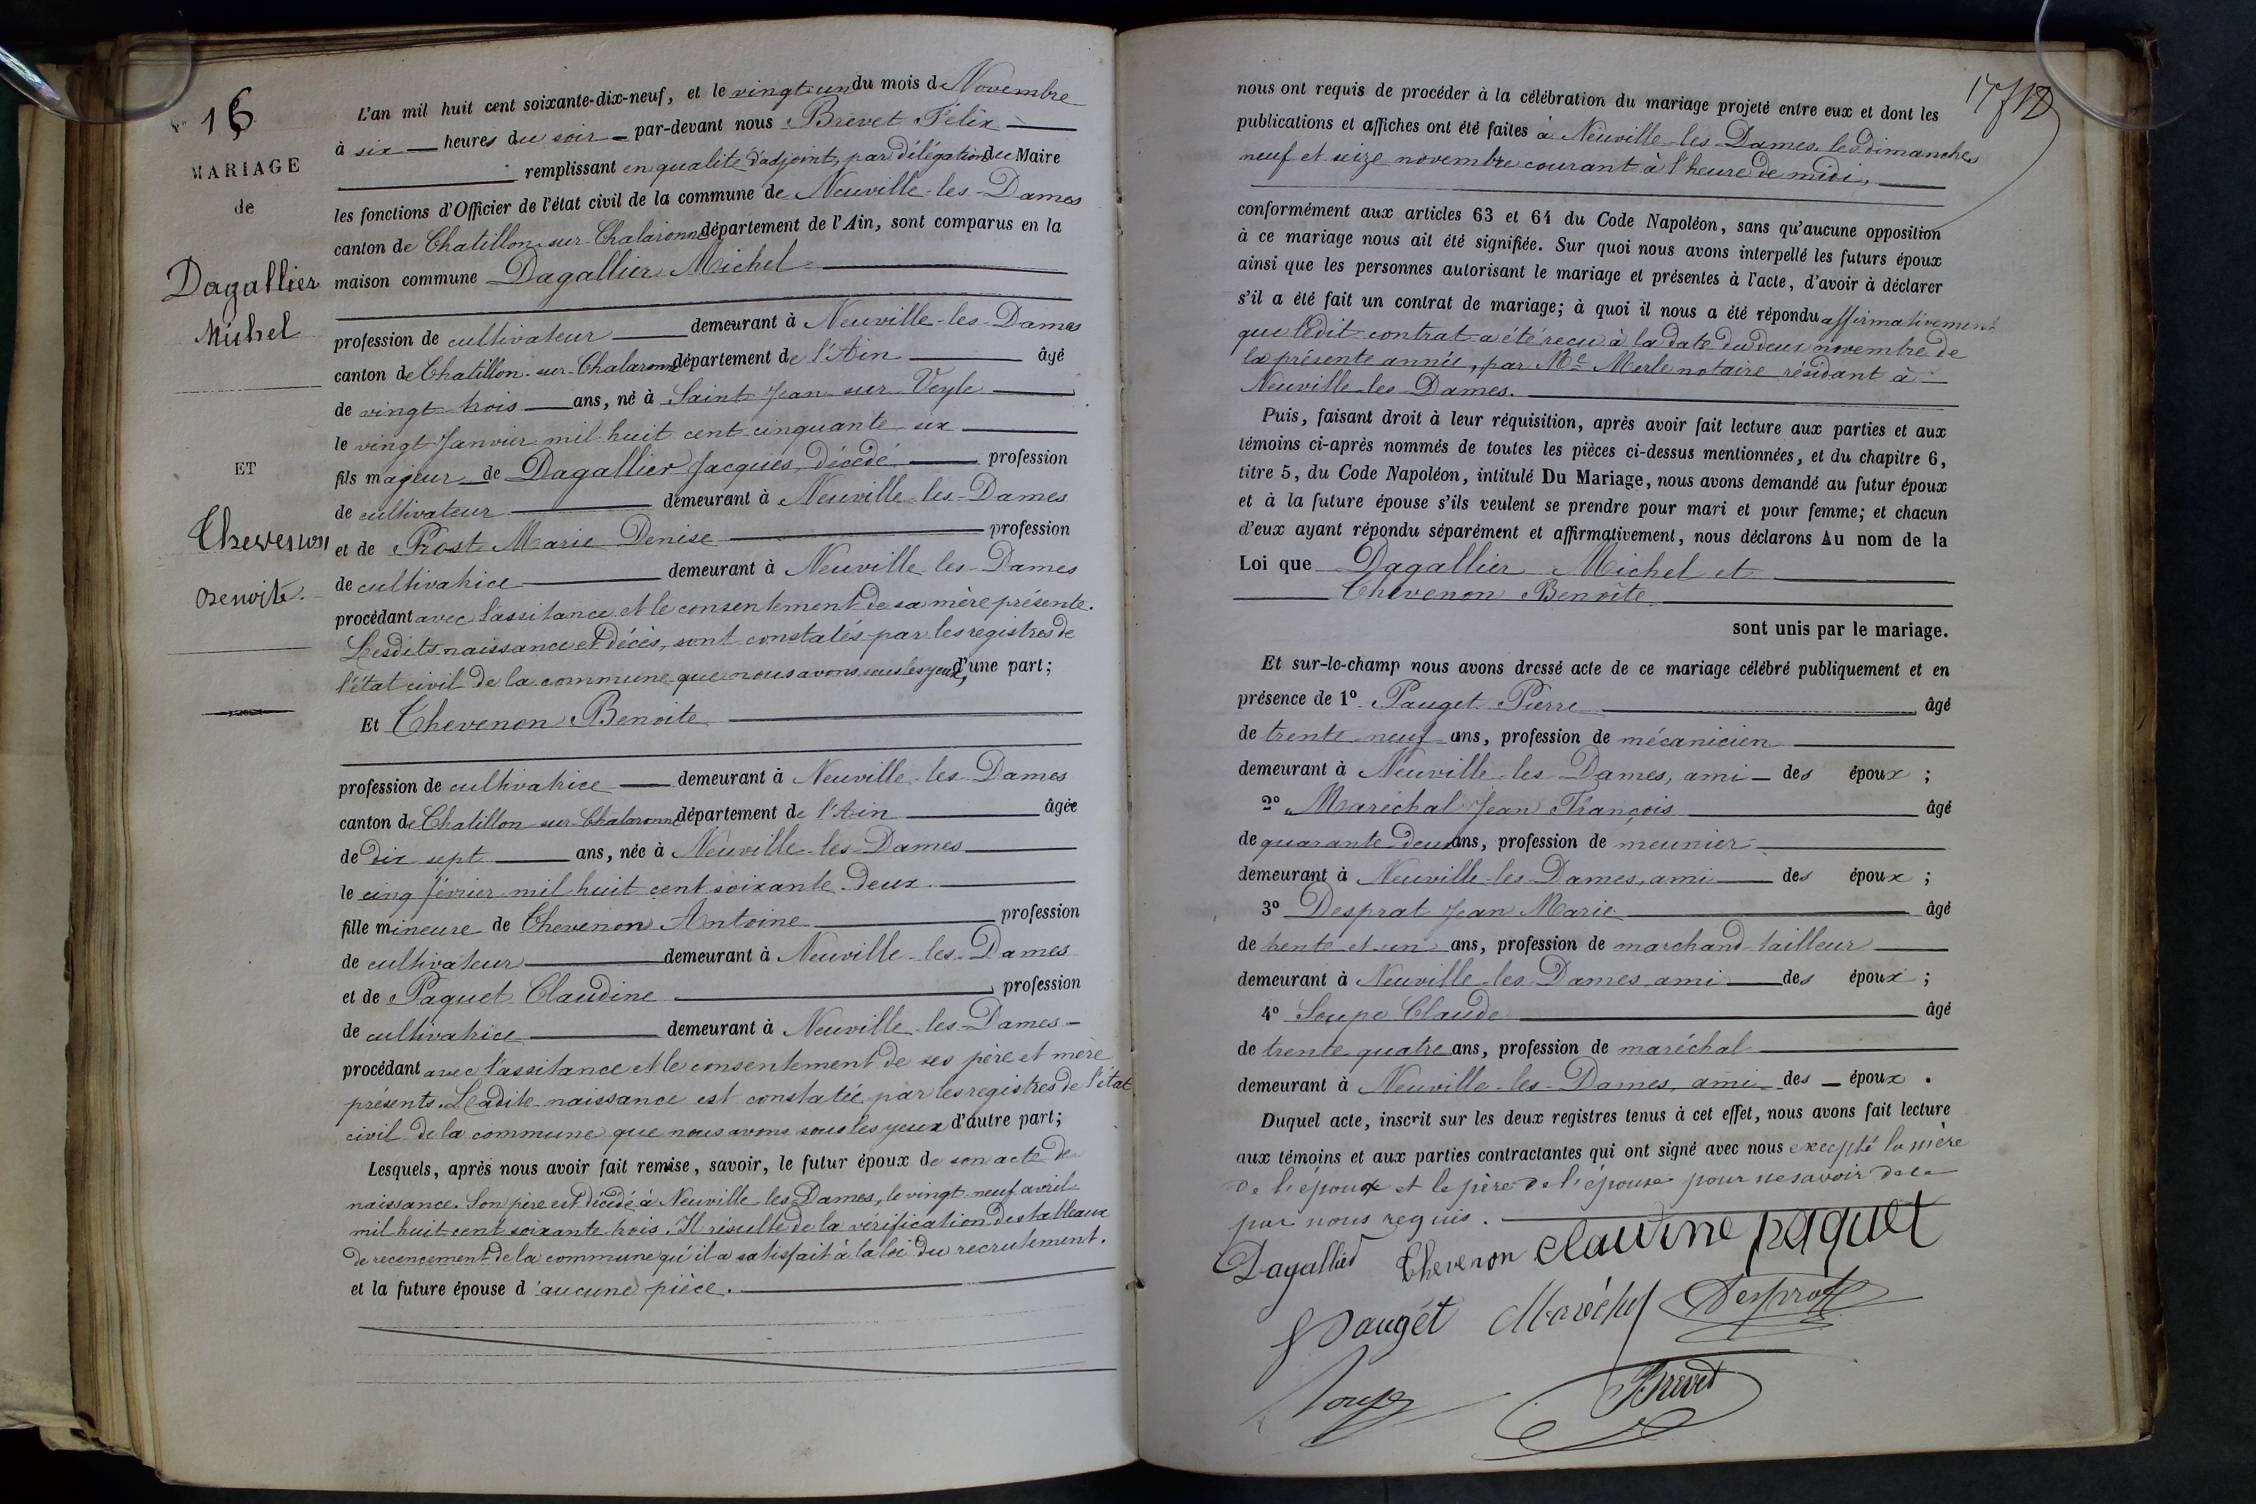 16
MARIAGE
de
Dagallier
Michel
ET
Chevenon
Benoite.
L'an mil huit cent soixante-dix-neuf, et le vingt un du mois de Novembre
à six heures du soir par-devant nous Brevet Félix
remplissant en qualité d'adjoint, par délégation du Maire
les fonctions d'Officier de l'état civil de la commune de Neuville-les-Dames
canton de Chatillon-sur-Chalaronne département de l'Ain, sont comparus en la
maison commune Dagallier Michel
profession de cultivateur demeurant à Neuville-les-Dames
canton de Chatillon-sur-Chalaronne département de l'Ain âgé
de vingt-trois ans, né à Saint Jean sur Veyle
le vingt Janvier mil huit cent cinquante six
fils majeur de Dagallier Jacques, décédé profession
de cultivateur demeurant à Neuville-les-Dames
et de Prost Marie Denise profession
de cultivatrice demeurant à Neuville les-Dames
procédant avec l'assitance et le consentement de sa mère présente.
Lesdits naissance et décès, sont constatés par les registres de
l'état civil de la commune que nous avons sous les yeux, d'une part;
Et Chevenon Benoite
profession de cultivatrice demeurant à Neuville-les-Dames
canton de Chatillon-sur-Chalaronne département de l'Ain âgée
de dix sept ans, née à Neuville-les-Dames
le cinq février mil huit cent soixante-deux.
fille mineure de Chevenon Antoine profession
de cultivateur demeurant à Neuville-les-Dames
et de Paquet Claudine profession
de cultivatrice demeurant à Neuville-les-Dames
procédant avec l'assitance et le consentement de ses père et mère
présents. Ladite naissance est constatée par les registres de l'état
civil de la commune que nous avons sous les yeux d'autre part;
Lesquels, après nous avoir fait remise, savoir, le futur époux de son acte de
naissance. Son père est décédé à Neuville les Dames, le vingt-neuf avril
mil huit cent soixante trois. Il résulte de la vérification des tableaux
de recencement de la commune qu'il a satisfait à la loi du recrutement.
et la future épouse d'aucune pièce.
nous ont requis de procéder à la célébration du mariage projeté entre eux et dont les
publications et affiches ont été faites à Neuville-les-Dames, les dimanches
neuf et seize novembre courant à l'heure de midi,
conformément aux articles 63 et 64 du Code Napoléon, sans qu'aucune opposition
à ce mariage nous ait été signifiée. Sur quoi nous avons interpellé les futurs époux
ainsi que les personnes autorisant le mariage et présentes à l'acte, d'avoir à déclarer
s'il a été fait un contrat de mariage; à quoi il nous a été répondu affirmativement
que ledit contrat a été reçu à la date du deux novembre de
la présente année, par Me Merle notaire résidant à
Neuville-les-Dames.
Puis, faisant droit à leur réquisition, après avoir fait lecture aux parties et aux
témoins ci-après nommés de toutes les pièces ci-dessus mentionnées, et du chapitre 6,
titre 5, du Code Napoléon, intitulé Du Mariage, nous avons demandé au futur époux
et à la future épouse s'ils veulent se prendre pour mari et pour femme; et chacun
d'eux ayant répondu séparément et affirmativement, nous déclarons Au nom de la
Loi que Dagallier Michel et
Chevenon Benoite
sont unis par le mariage.
Et sur-le-champ nous avons dressé acte de ce mariage célébré publiquement et en
présence de 1° Pauget Pierre âgé
de trente neuf ans, profession de mécanicien
demeurant à Neuville-les-Dames, ami des époux;
2° Maréchal Jean François âgé
de quarante-deux ans, profession de meunier
demeurant à Neuville-les-Dames, ami des époux;
3° Desprat Jean Marie âgé
de trente et un ans, profession de marchand tailleur
demeurant à Neuville-les-Dames, ami des époux;
4° Soupe Claude âgé
de trente quatre ans, profession de maréchal
demeurant à Neuville-les-Dames, ami des époux.
Duquel acte, inscrit sur les deux registres tenus à cet effet, nous avons fait lecture
aux témoins et aux parties contractantes qui ont signé avec nous excepté la mère
de l'époux et le père de l'épouse pour ne savoir de ce
par nous requis.
Dagallier Chevenon Claudine paquet
Pauget Maréchal Desprat
Soupe Brevet